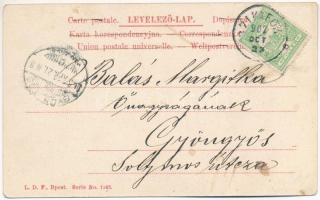 Carte postale. LEVELEZŐ-LAP. Dopisnica.
Karta korespondencyjna. Correspondenz-
Union postale universelle. Weltpostverein.
902
OCT
27
Balás Margitka
Őnagyságának
Gyöngyös
Solymos útcza
L. D. F., Bpest. Serie No.